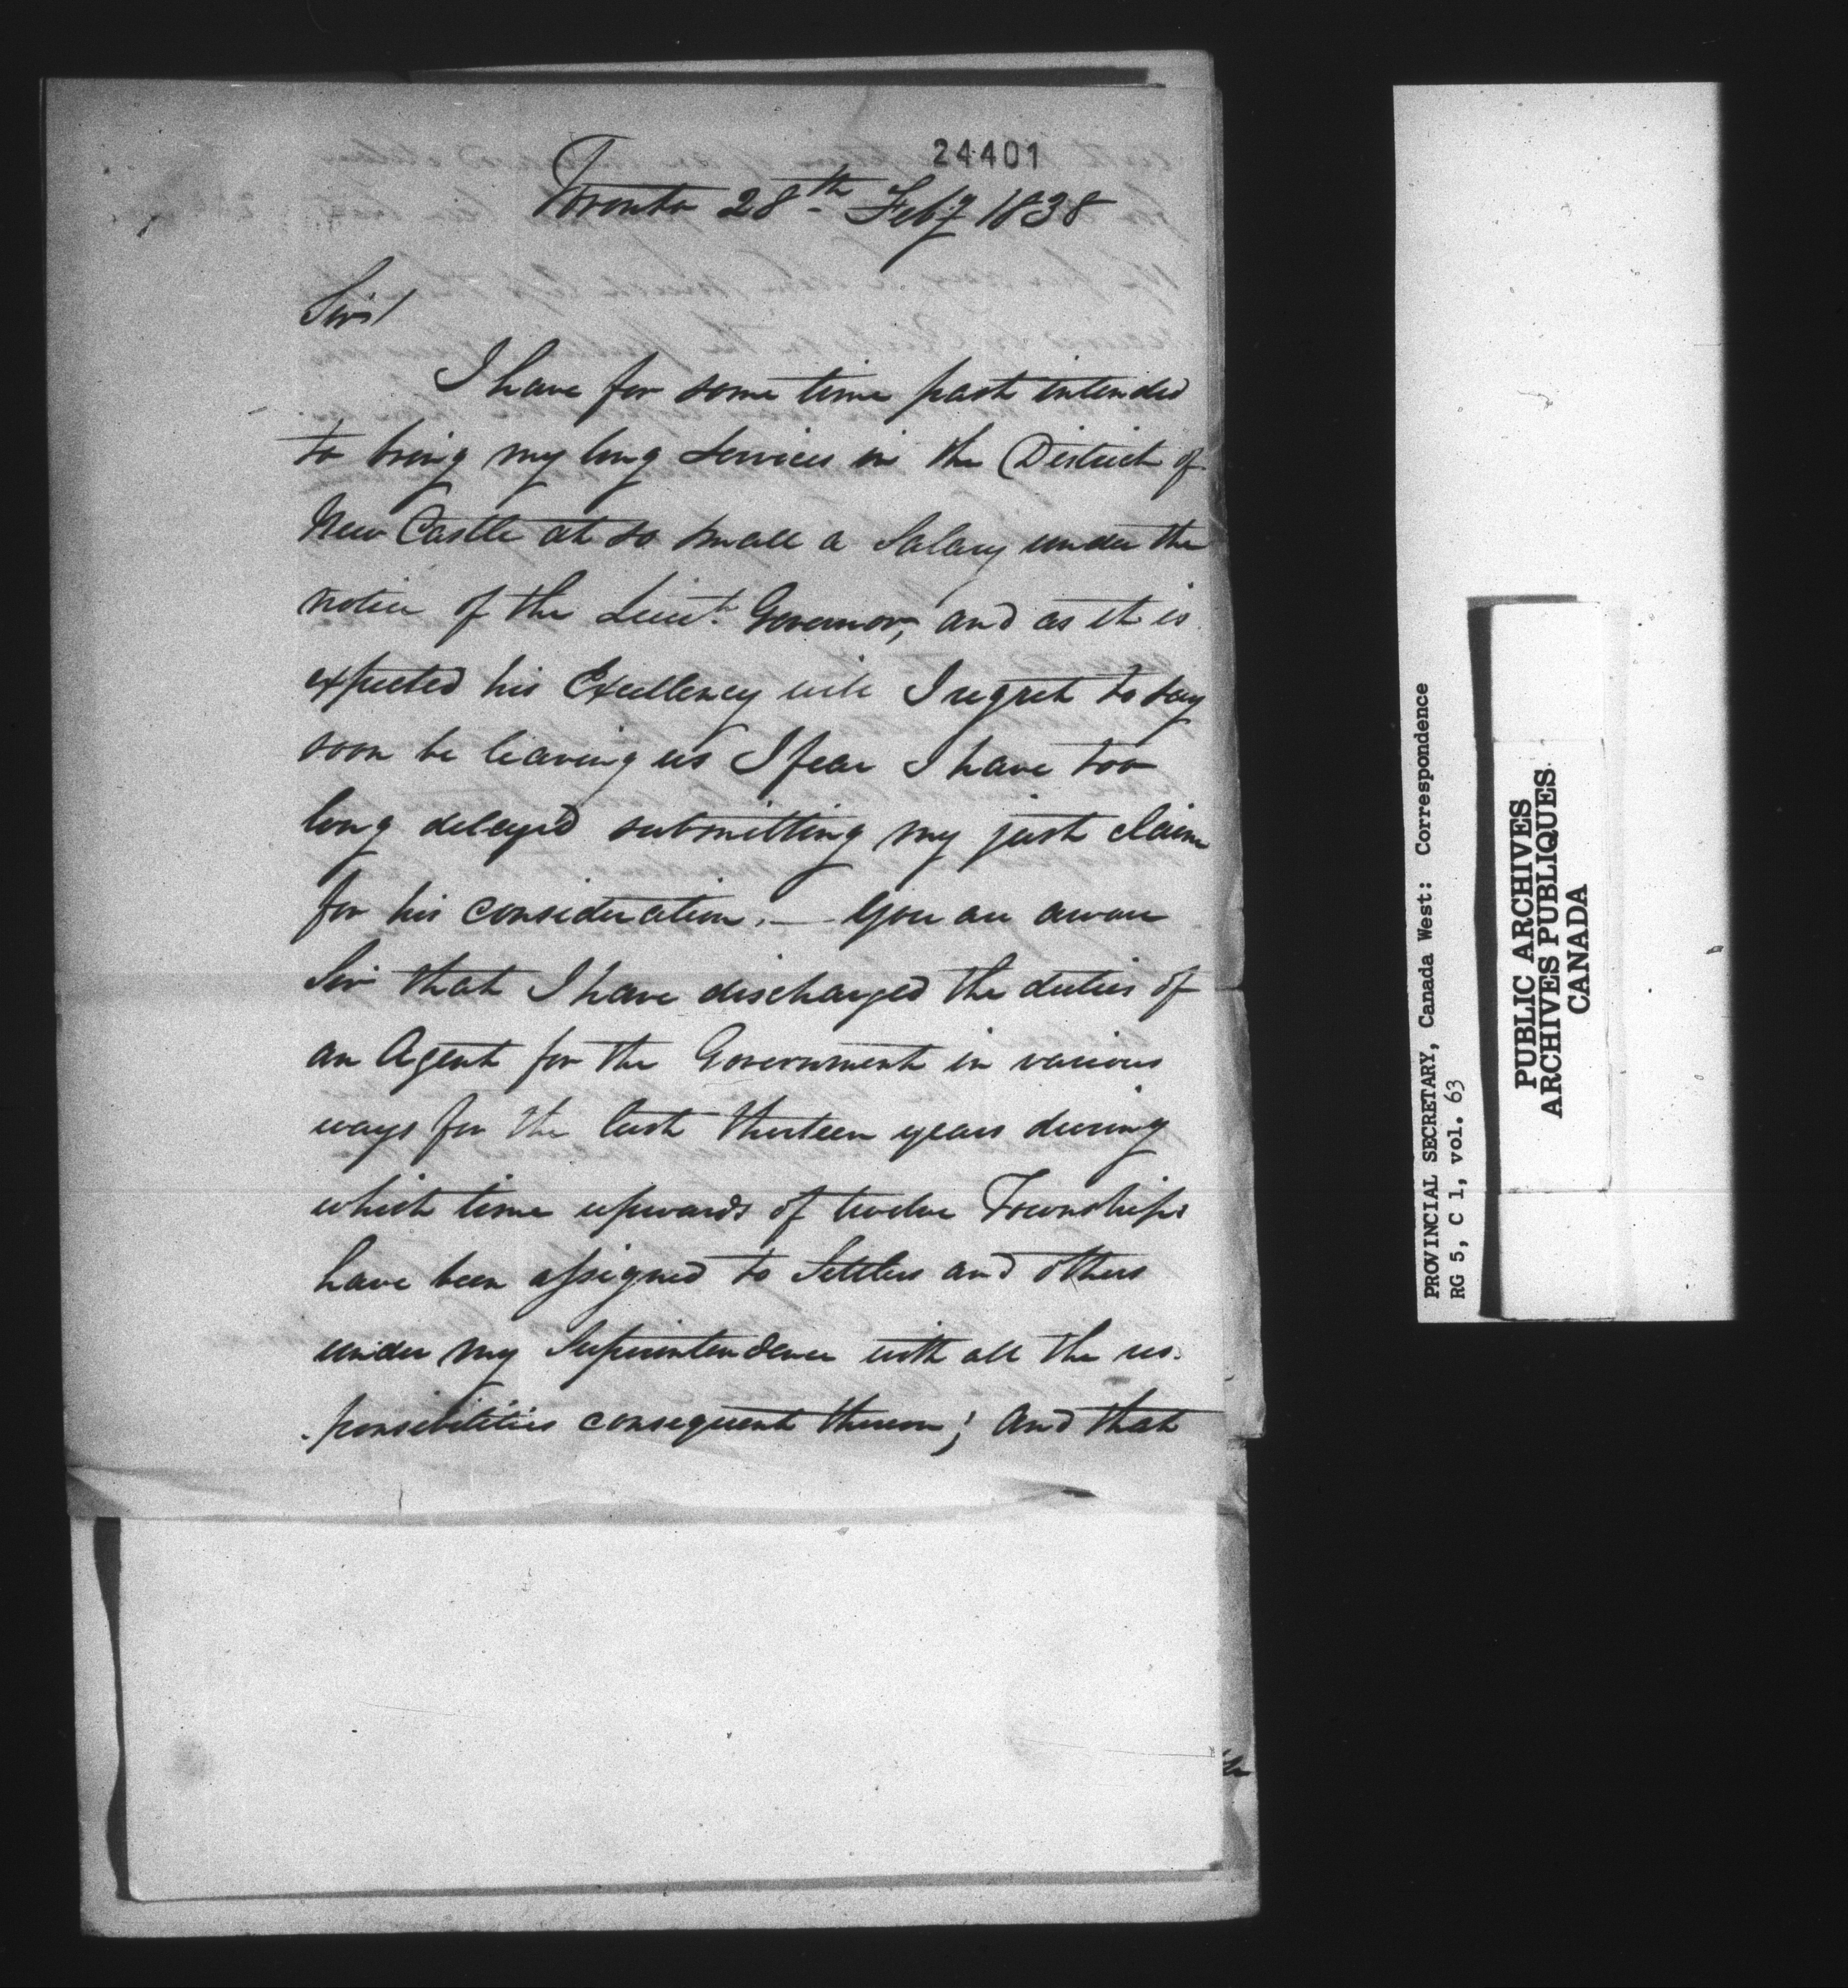 24401
Toronto 28th Feby 1838
Sir/
I have for some time past intended
to bring my long services in the District of
New Castle at so small a Salary under the
notice of the Lieut. Governor, and as it is
expected his Excellency will I regret to say
soon be leaving us I fear I have too
long delayed submitting my just claim
for his consideration. — You are aware
Sir that I have discharged the duties of
an Agent for the Government in various
ways for the last thirteen years during
which time upwards of twelve Townships
have been assigned to Settlers and others
under my Superintendence with all the res-
ponsibilities consequent thereon; and that
PROVINCIAL SECRETARY, Canada West: Correspondence
RG 5, C 1, vol. 63
PUBLIC ARCHIVES
ARCHIVES PUBLIQUES
CANADA